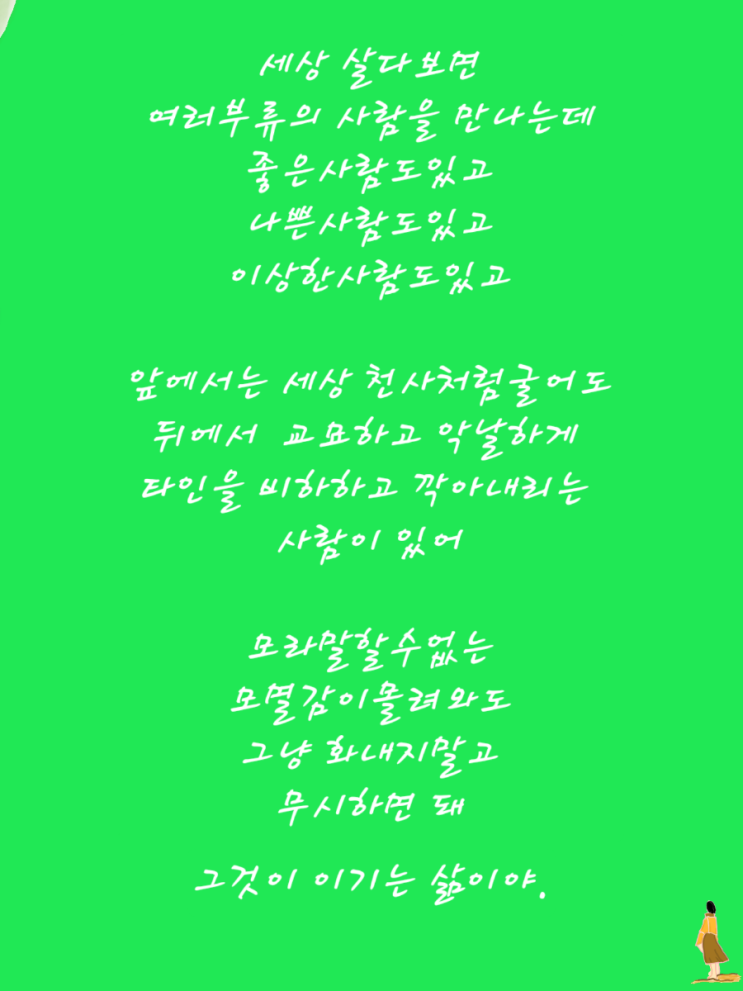 세상 살다보면
여러부류의 사람을 만나는데
좋은사람도있고
나쁜사람도있고
이상한사람도있고
앞에서는 세상 천사처럼굴어도
뒤에서 교묘하고 악날하게
타인을 비하하고 깍아내리는
사람이 있어
모라말할수없는
모멸감이몰려와도
그냥 화내지말고
무시하면 돼
그것이 이기는 삶이야.